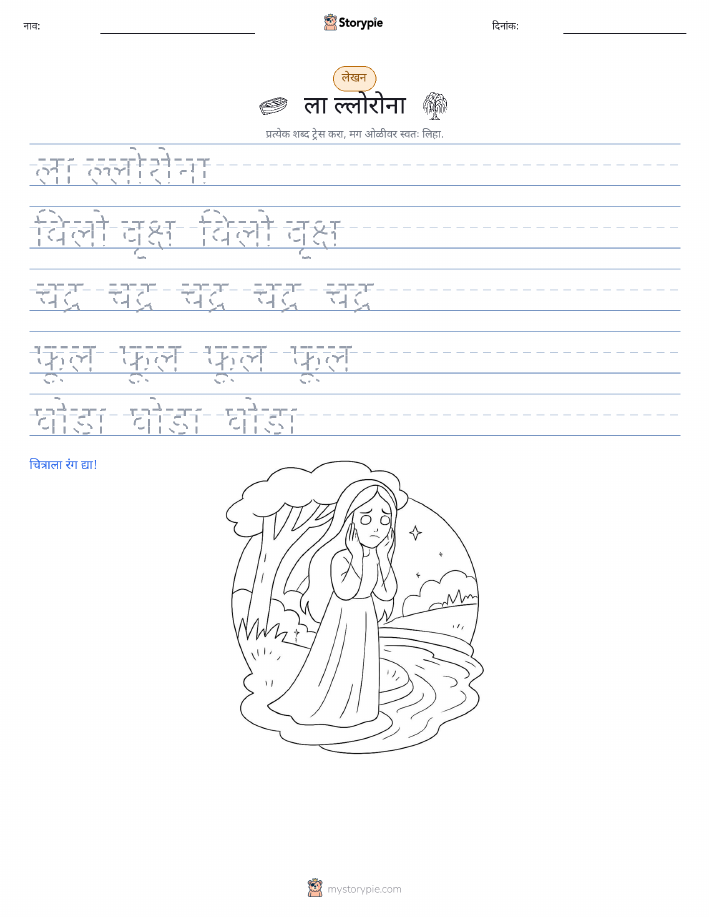 नाव: Storypie दिनांक:
लेखन
ला ल्लोरोना
प्रत्येक शब्द ट्रेस करा, मग ओळीवर स्वतः लिहा.
ला ल्लोरोना
विलो वृक्ष विलो वृक्ष
चंद्र चंद्र चंद्र चंद्र चंद्र
फूल फूल फूल फूल
घोडा घोडा घोडा
चित्राला रंग द्या!
mystorypie.com